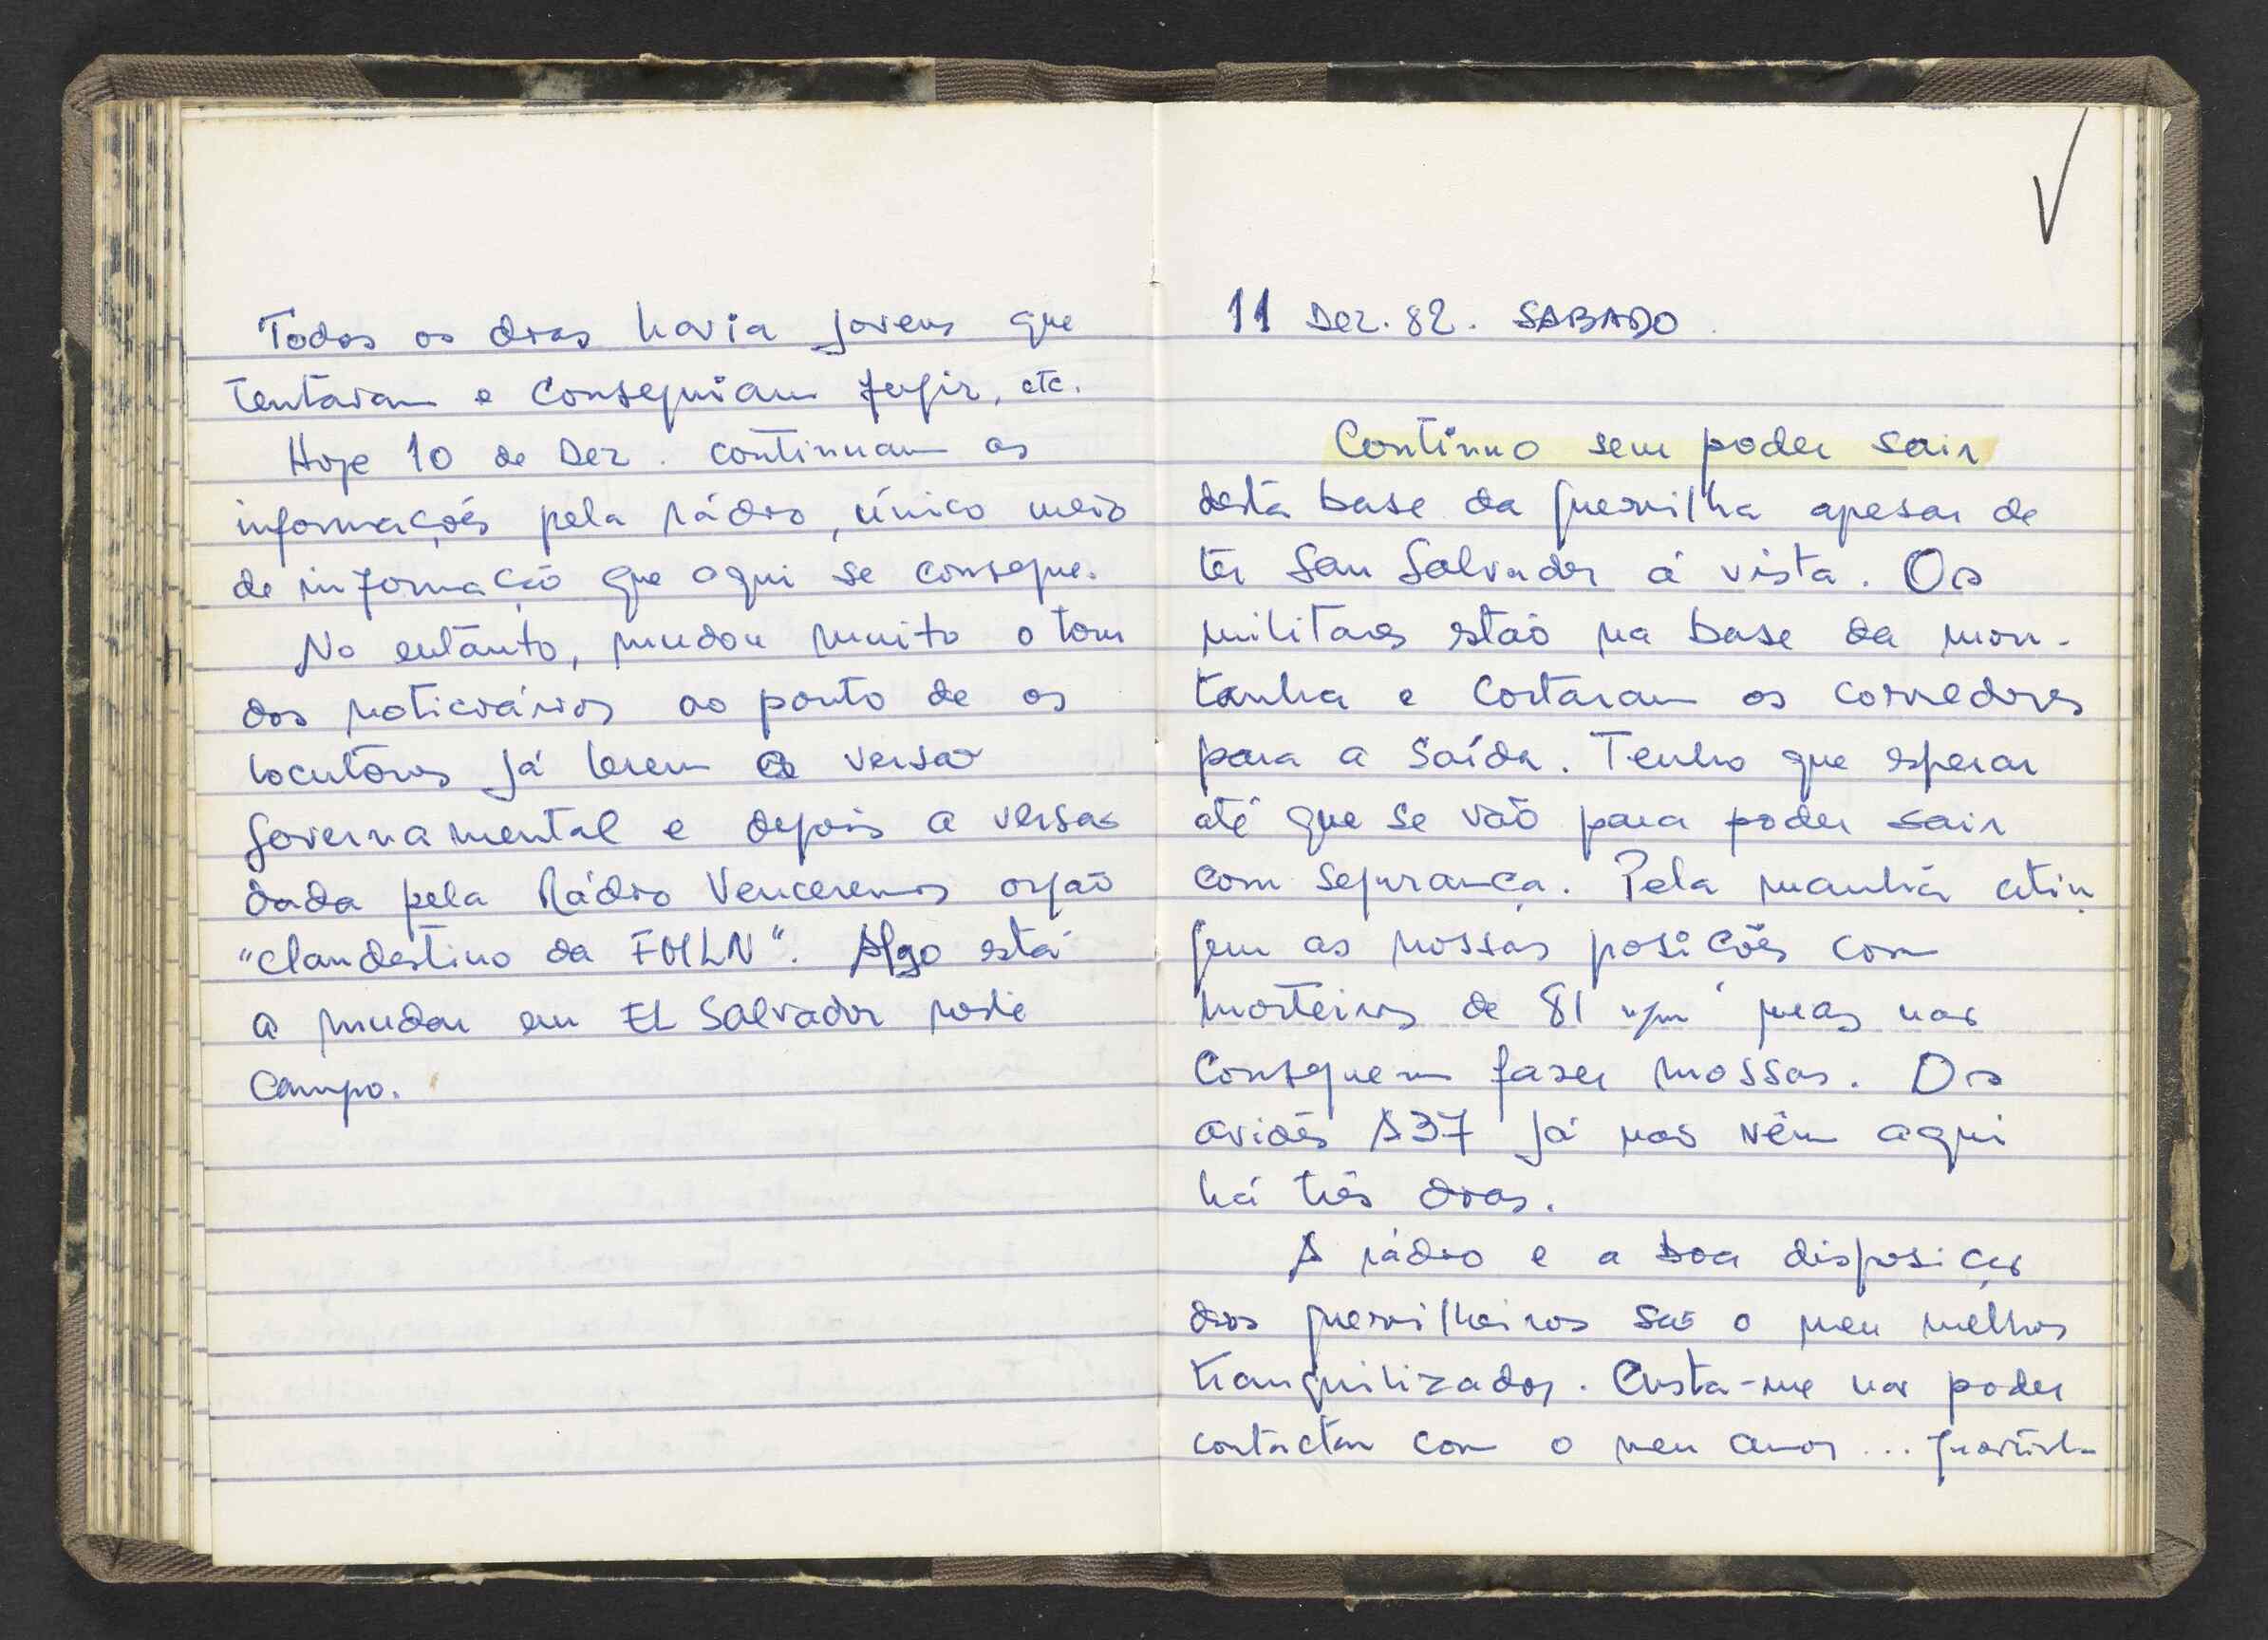 Todos os dias havia jovens que
tentavam e conseguiam fugir, etc.
Hoje 10 de Dez. continuam as
informações pela rádio, único meio
de informação que aqui se consegue.
No entanto, mudou muito o tom
dos noticiários ao ponto de os
locutores já lerem a versão
governamental e depois a versão
dada pela Rádio Venceremos orgão
"clandestino da FMLN". Algo está
a mudar em EL Salvador neste
campo.
11 Dez. 82. SABADO
Continuo sem poder sair
desta base da guerrilha apesar de
ter San Salvador á vista. Os
militares estão na base da mon-
tanha e cortaram os corredores
para a saída. Tenho que esperar
até que se vão para poder sair
com segurança. Pela manhã atin
gem as nossas posições com
morteiros de 81 mm mas não
conseguem fazer mossas. Os
aviões A37 já não vêm aqui
há três dias.
A rádio e a boa disposição
dos guerrilheiros são o meu melhor
tranquilizador. Custa-me não poder
contactar com o meu amor...